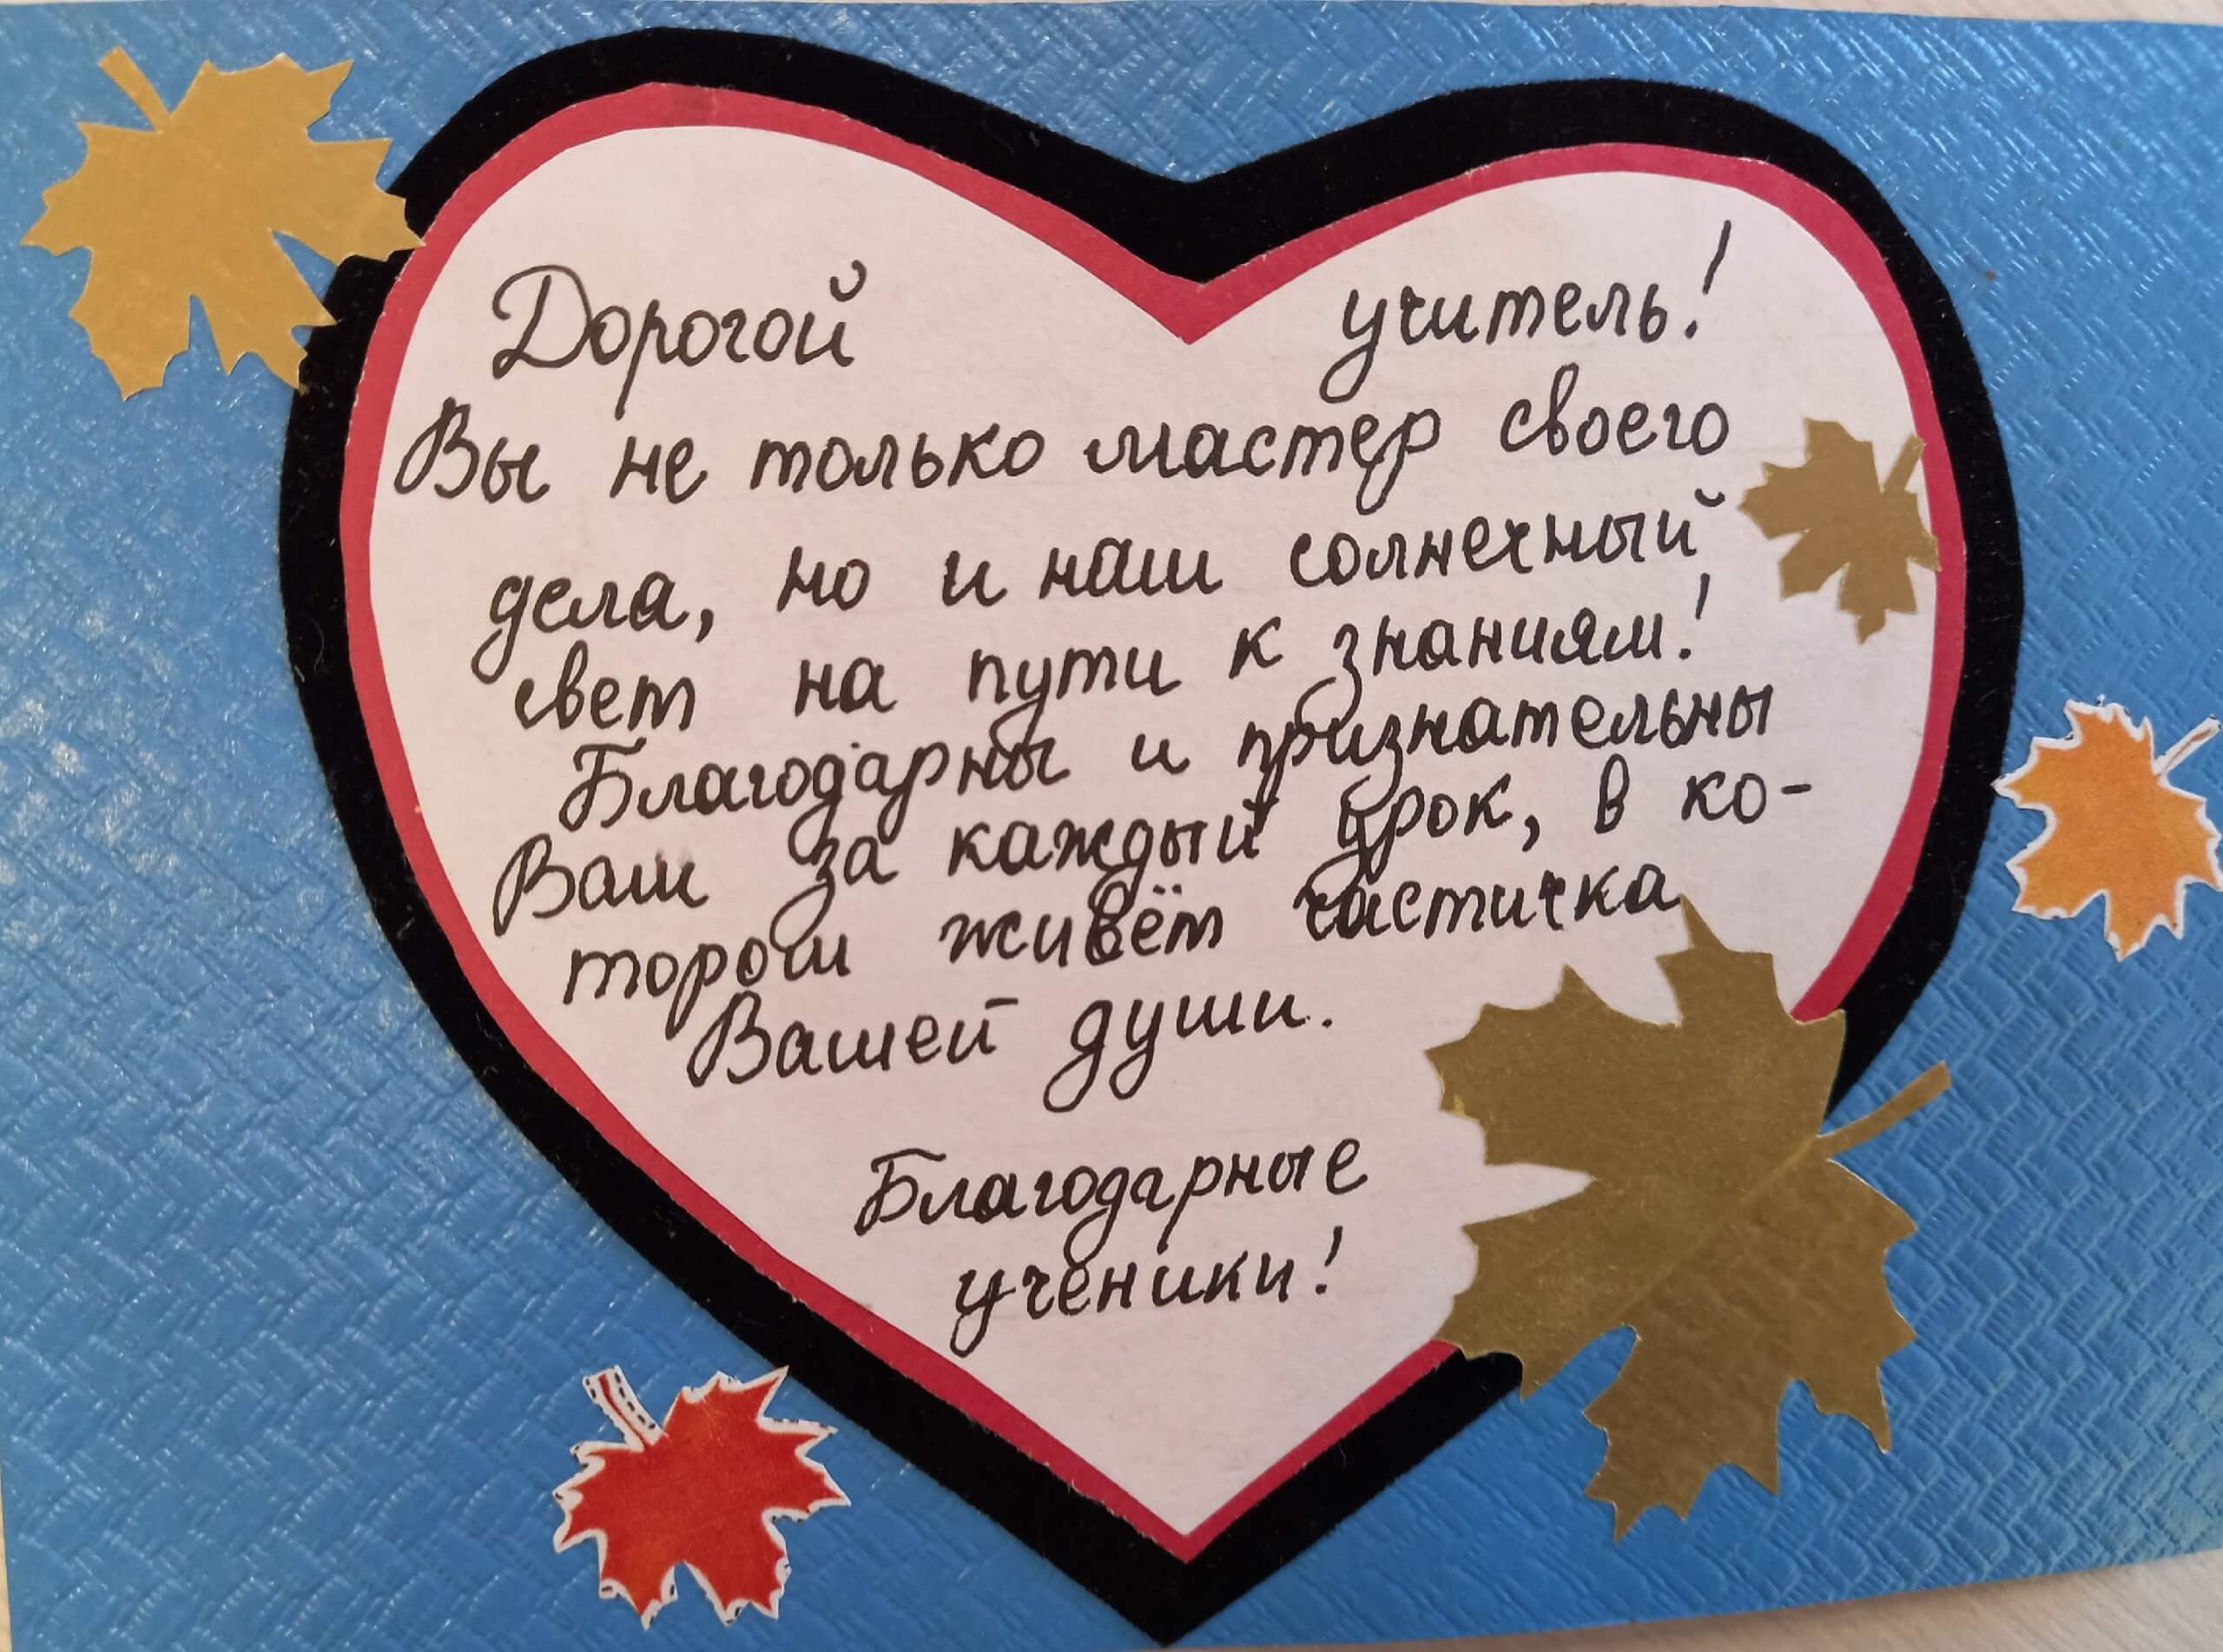 Дорогой учитель!
Вы не только мастер своего
дела, но и наш солнечный
свет на пути к знаниям!
Благодарны и признательны
Вам за каждый урок, в ко-
тором живёт частичка
Вашей души.
Благодарные
ученики!